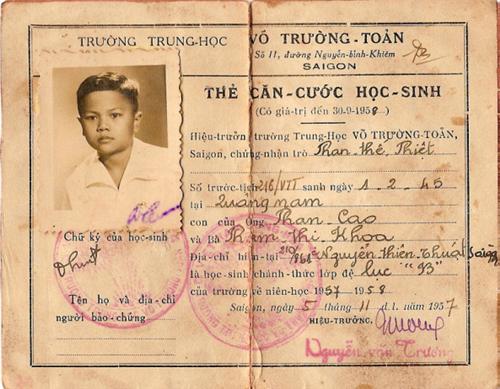 TRƯỜNG TRUNG-HỌC VÕ TRƯỜNG-TOẢN
Số 11, đường Nguyễn-bỉnh-Khiêm
SAIGON
THẺ CĂN-CƯỚC HỌC-SINH
(Có giá-trị đến 30-9-1958)
Hiệu-trưởng trường Trung-Học VÕ TRƯỜNG-TOẢN,
Saigon, chứng-nhận trò Phan thế Thiết
Số trước-tịch 216/VTT sanh ngày 1-2-45
tại Quảng nam
con của Ông Phan-Cao
và Bà Phạm Thị Khoa
Địa-chỉ hiện-tại Nguyễn Thiện Thuật Saigon
là học-sinh chánh-thức lớp đệ lục "B3"
của trường về niên-học 1957-1958
Saigon, ngày 5 tháng 11 d.l. 1957
HIỆU-TRƯỞNG,
Nguyễn văn Trương
Chữ ký của học-sinh
Tên họ và địa-chỉ
người bảo-chứng